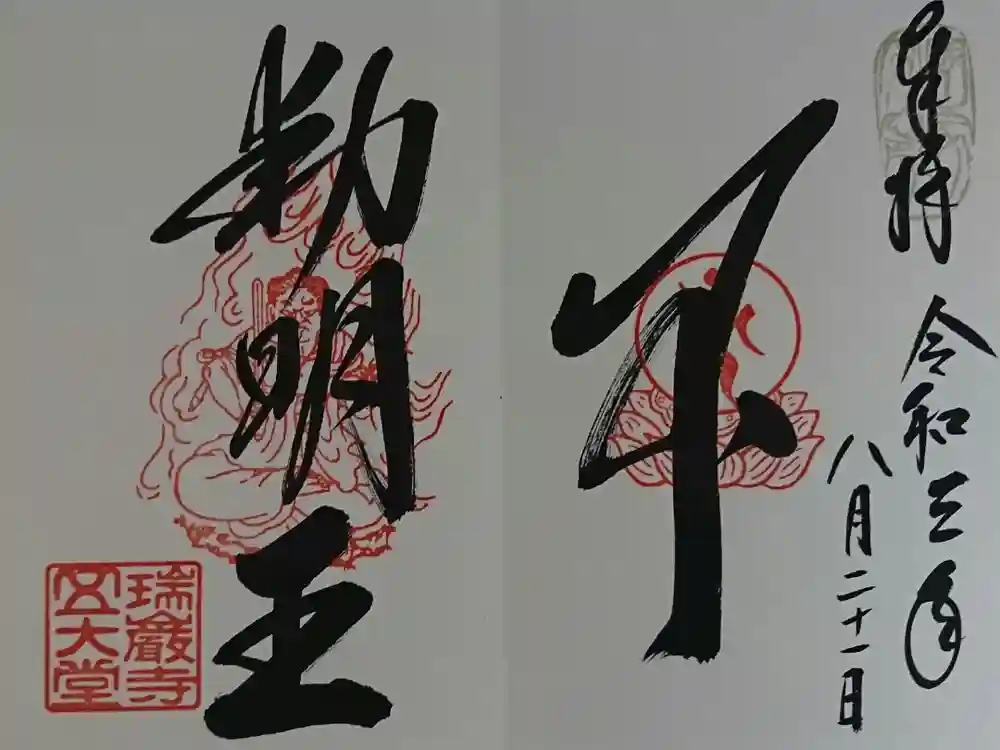 奉拝
令和三年
八月二十一日
不
動明王
瑞巌寺
五大堂